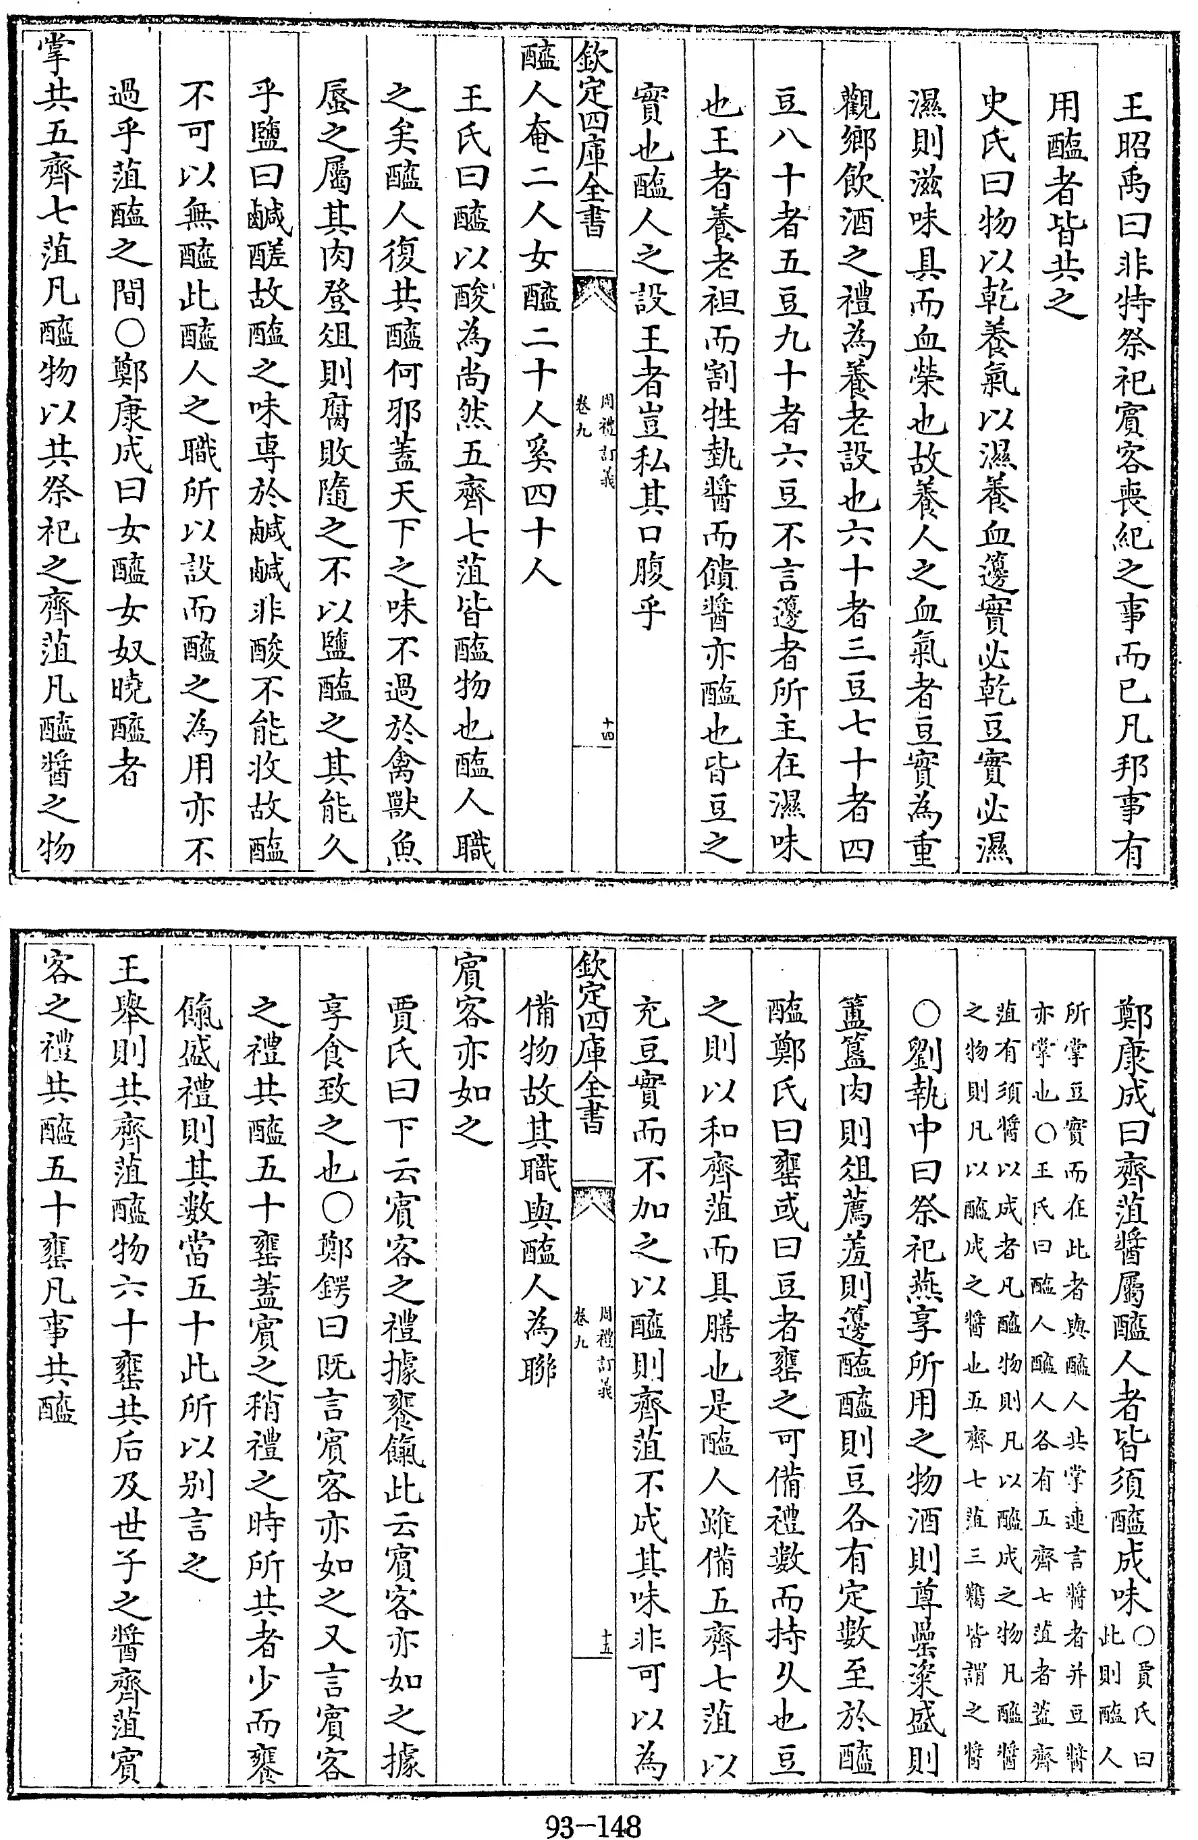 王昭禹曰非特祭祀賔客喪紀之事而已凡邦事有
用醢者皆共之
史氏曰物以乾養氣以濕養血籩實必乾豆實必濕
濕則滋味具而血榮也故養人之血氣者豆實為重
觀鄉飲酒之禮為養老設也六十者三豆七十者四
豆八十者五豆九十者六豆不言籩者所主在濕味
也王者養老袒而割牲執醬而饋醬亦醢也皆豆之
實也醢人之設王者豈私其口腹乎
欽定四庫全書
周禮訂義
卷九
十四
醯人奄二人女醯二十人奚四十人
王氏曰醯以酸為尚然五齊七菹皆醯物也醢人職
之矣醯人復共醯何邪蓋天下之味不過於禽獸魚
蜃之屬其肉登俎則腐敗隨之不以鹽醢之其能久
乎鹽曰鹹醝故醢之味専於鹹鹹非酸不能收故醢
不可以無醯此醯人之職所以設而醯之為用亦不
過乎菹醢之間○鄭康成曰女醯女奴曉醯者
掌共五齊七菹凡醯物以共祭祀之齊菹凡醯醬之物
鄭康成曰齊菹醬屬醯人者皆須醯成味○賈氏曰
此則醢人
所掌豆實而在此者與醯人共掌連言醬者并豆醬
亦掌也○王氏曰醢人醯人各有五齊七菹者蓋齊
菹有須醬以成者凡醯物則凡以醯成之物凡醯醬
之物則凡以醯成之醬也五齊七菹三臡皆謂之醬
○劉執中曰祭祀燕享所用之物酒則尊罍粢盛則
簠簋肉則俎薦羞則籩醢醯則豆各有定數至於醯
醢鄭氏曰罋或曰豆者罋之可備禮數而持久也豆
之則以和齊菹而具膳也是醢人雖備五齊七菹以
充豆實而不加之以醯則齊菹不成其味非可以為
欽定四庫全書
周禮訂義
卷九
十五
備物故其職與醢人為聯
賔客亦如之
賈氏曰下云賔客之禮據饔餼此云賔客亦如之據
享食致之也○鄭鍔曰既言賔客亦如之又言賔客
之禮共醯五十罋蓋賔之稍禮之時所共者少而饔
餼盛禮則其數當五十此所以别言之
王舉則共齊菹醯物六十罋共后及世子之醬齊菹賔
客之禮共醯五十罋凡事共醯
93-148